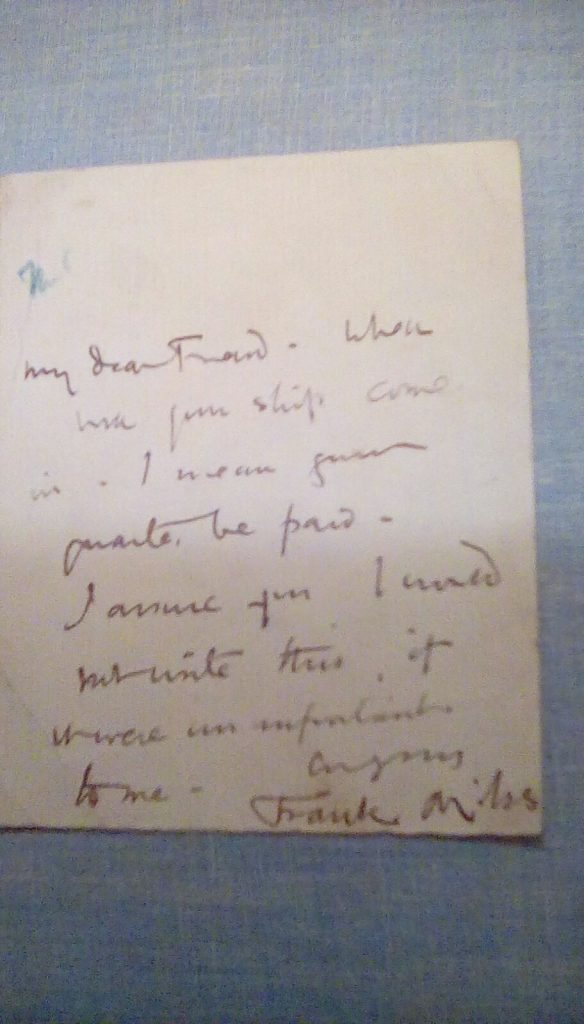 my dear Friend. When
will your ship come
in. I mean your
quarter be paid -
I assure you I would
not write this, if
it were unimportant
to me -
Frank Miles